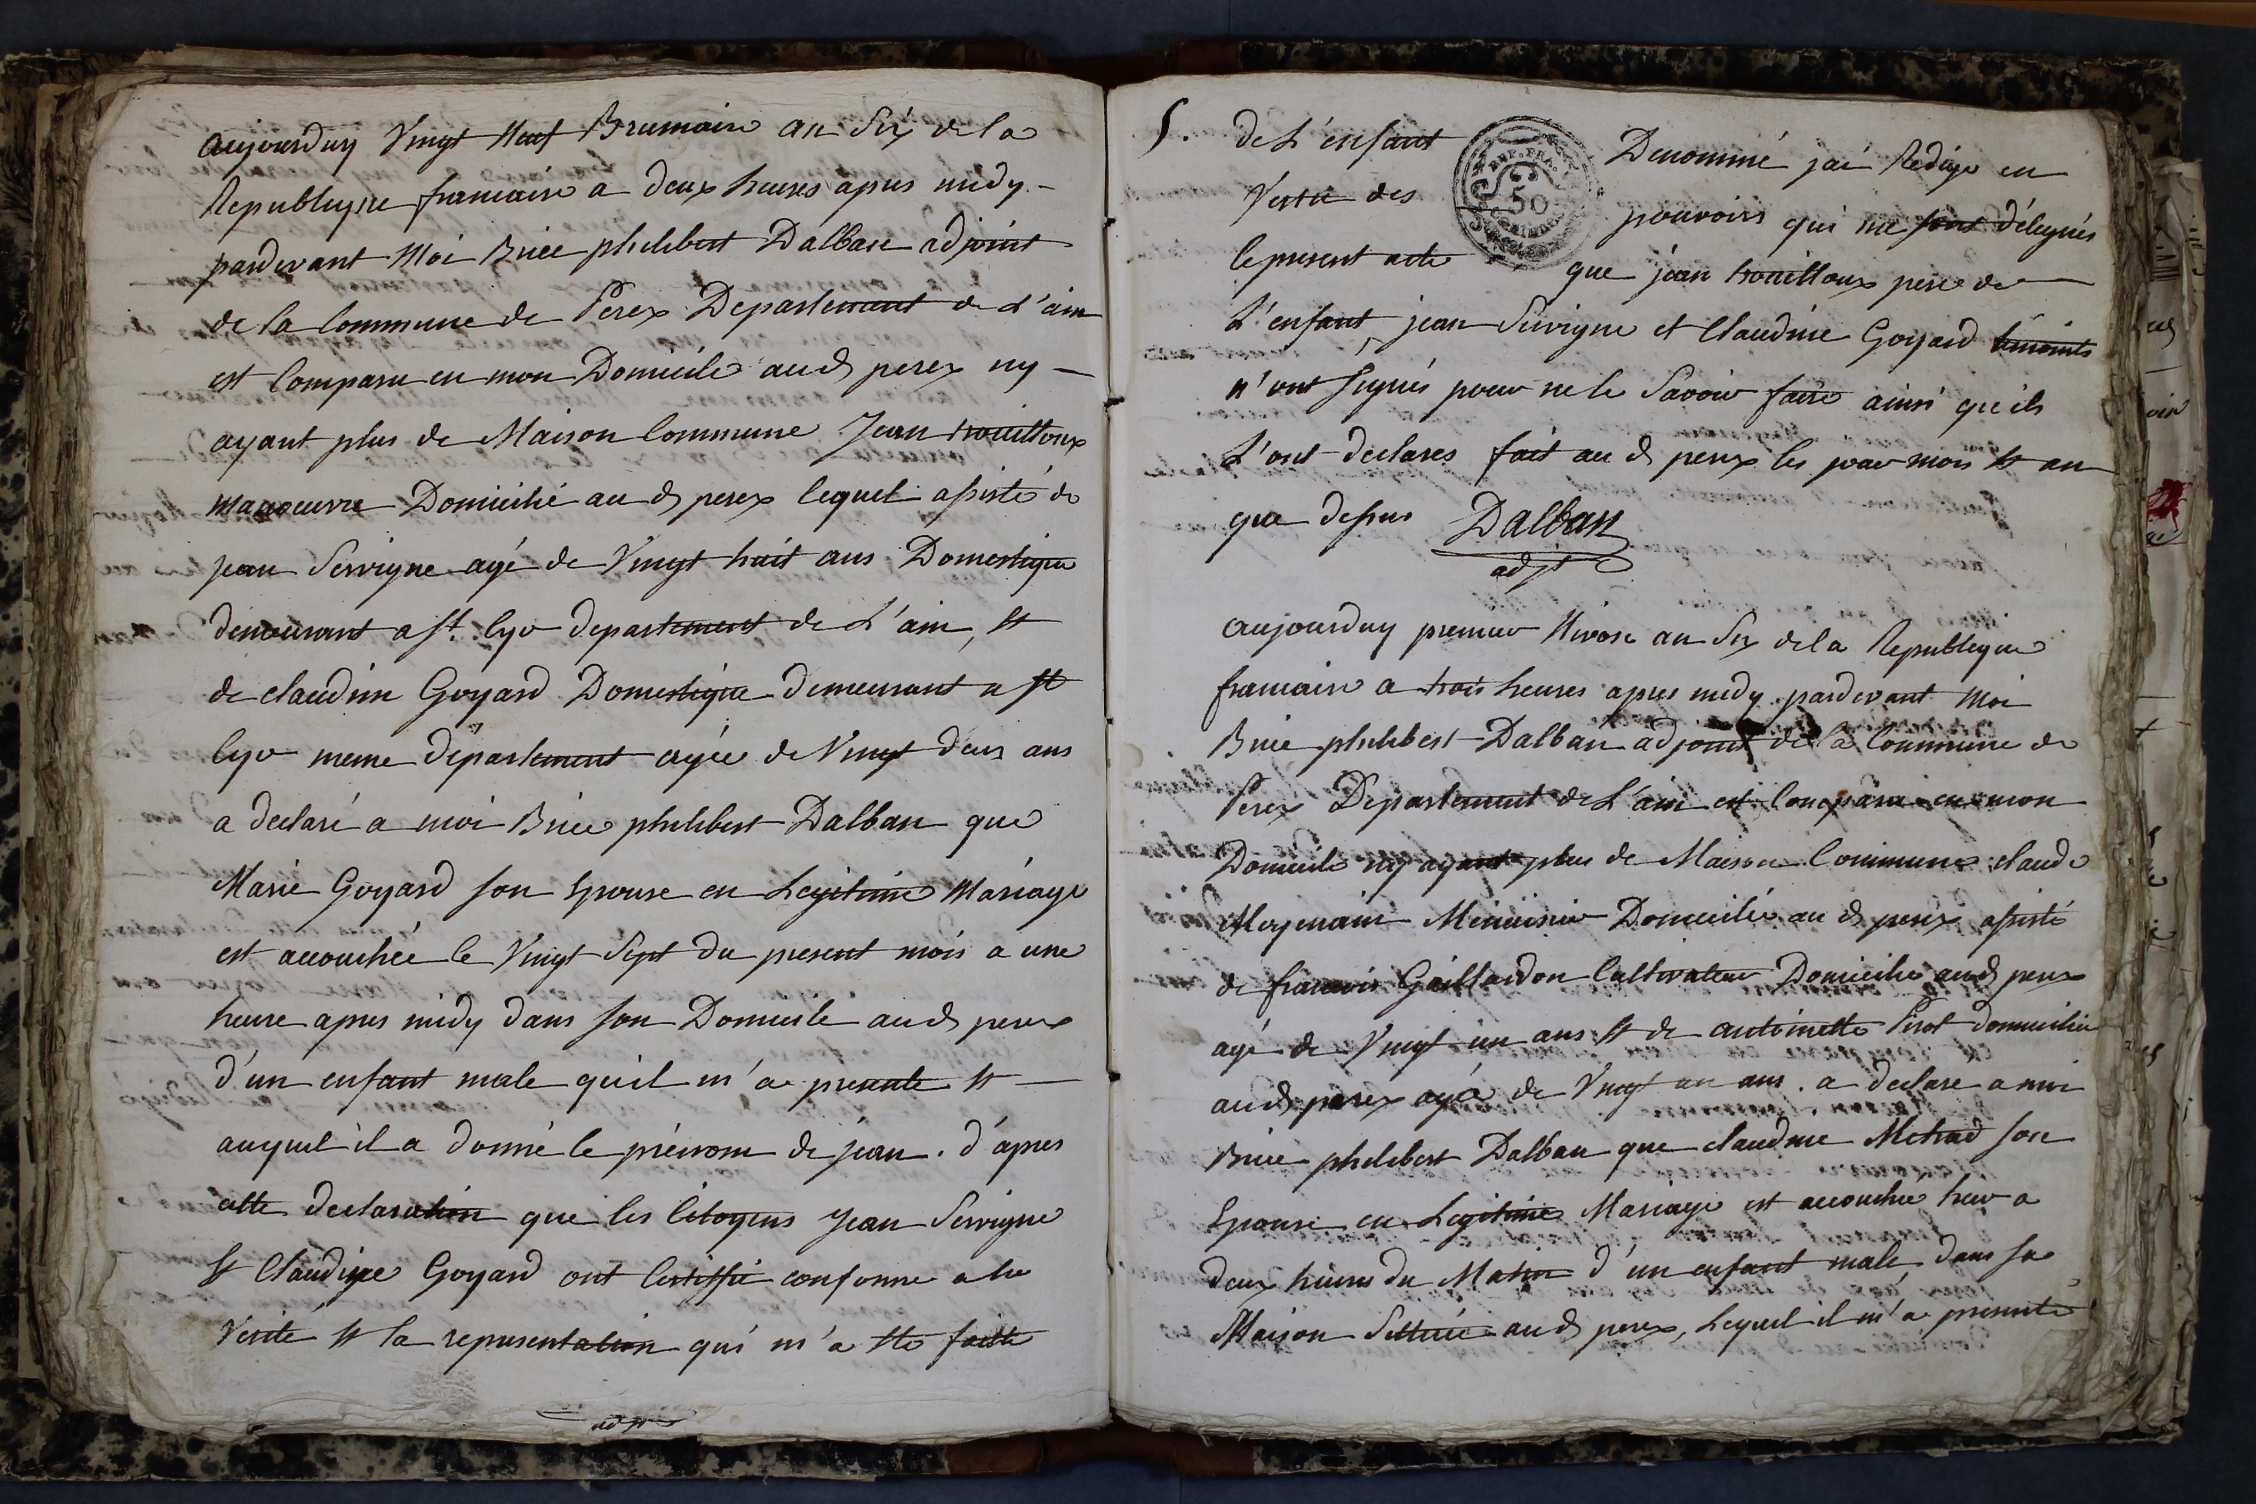 aujourduy Vingt Neuf Brumaire an Six de la
Republique francaise a deux heures apres midy -
pardevant Moi Brice philibert Dalban adjoint
de la Commune de Perex Departement de L'ain
est Comparu en mon Domicile aud perex ny -
ayant plus de Maison Commune Jean trouilloux
manoeuvre Domicilié au d perex lequel assisté de
jean Servigne agé de Vingt huit ans Domestique
demeurant a st. Cyr departement de L'ain, et
de claudine Goyard Domestique demeurant a st
Cyr meme département agée de Vingt deux ans
a declaré a moi Brice philibert Dalban que
Marie Goyard son Epouse en Legitime Mariage
est accouchée le Vingt Sept du present mois a une
heure apres midy dans son Domicile au d perex
d'un enfant male quil m'a presente et
auquel il a donné le prénom de jean. d'apres
cette declaration que les Citoyens Jean Servigne
et Claudine Goyard ont Certiffié conforme a la
Verité et la representation qui m'a ete faitte
adjt
5.
de L'enfant Denommé jai Redigé en
Vertu des pouvoirs qui me sont délegués
le present acte que jean trouilloux pere de
L'enfant, jean Servigne et Claudine Goyard temoints
n'ont signés pour ne le Savoir faire ainsi qu'ils
L'ont declarés fait au d perex les jour mois et an
que dessus Dalban
adjt
REP. FRA.
50
aujourduy premier Nivose an Six de la Republique
francaise a trois heures apres midy pardevant Moi
Brice philibert Dalban adjoint de la Commune de
Perex Departement de L'ain est Comparu en mon
Domicile ny ayant plus de Maison Commune claude
Menuisier Domicilié au d perex assisté
de francois Gaillardon Cultivateur Domicilié au d perex
agé de Vingt un ans et de antoinette Pirot domiciliée
au d perex agée de Vingt un ans. a declaré a moi
Brice philibert Dalban que claudine Metrad son
Epouse en Legitime Mariage est accouchée hier a
deux heures du Matin d'un enfant male, dans sa
Maison Sittuée au d perex, Lequel il m'a presenté